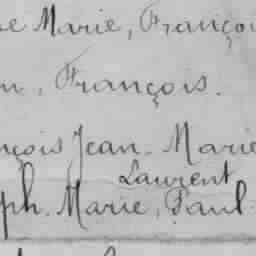 e Marie, Françoi
n, François.
nçois Jean. Marie
Laurent
ph. Marie, Paul.